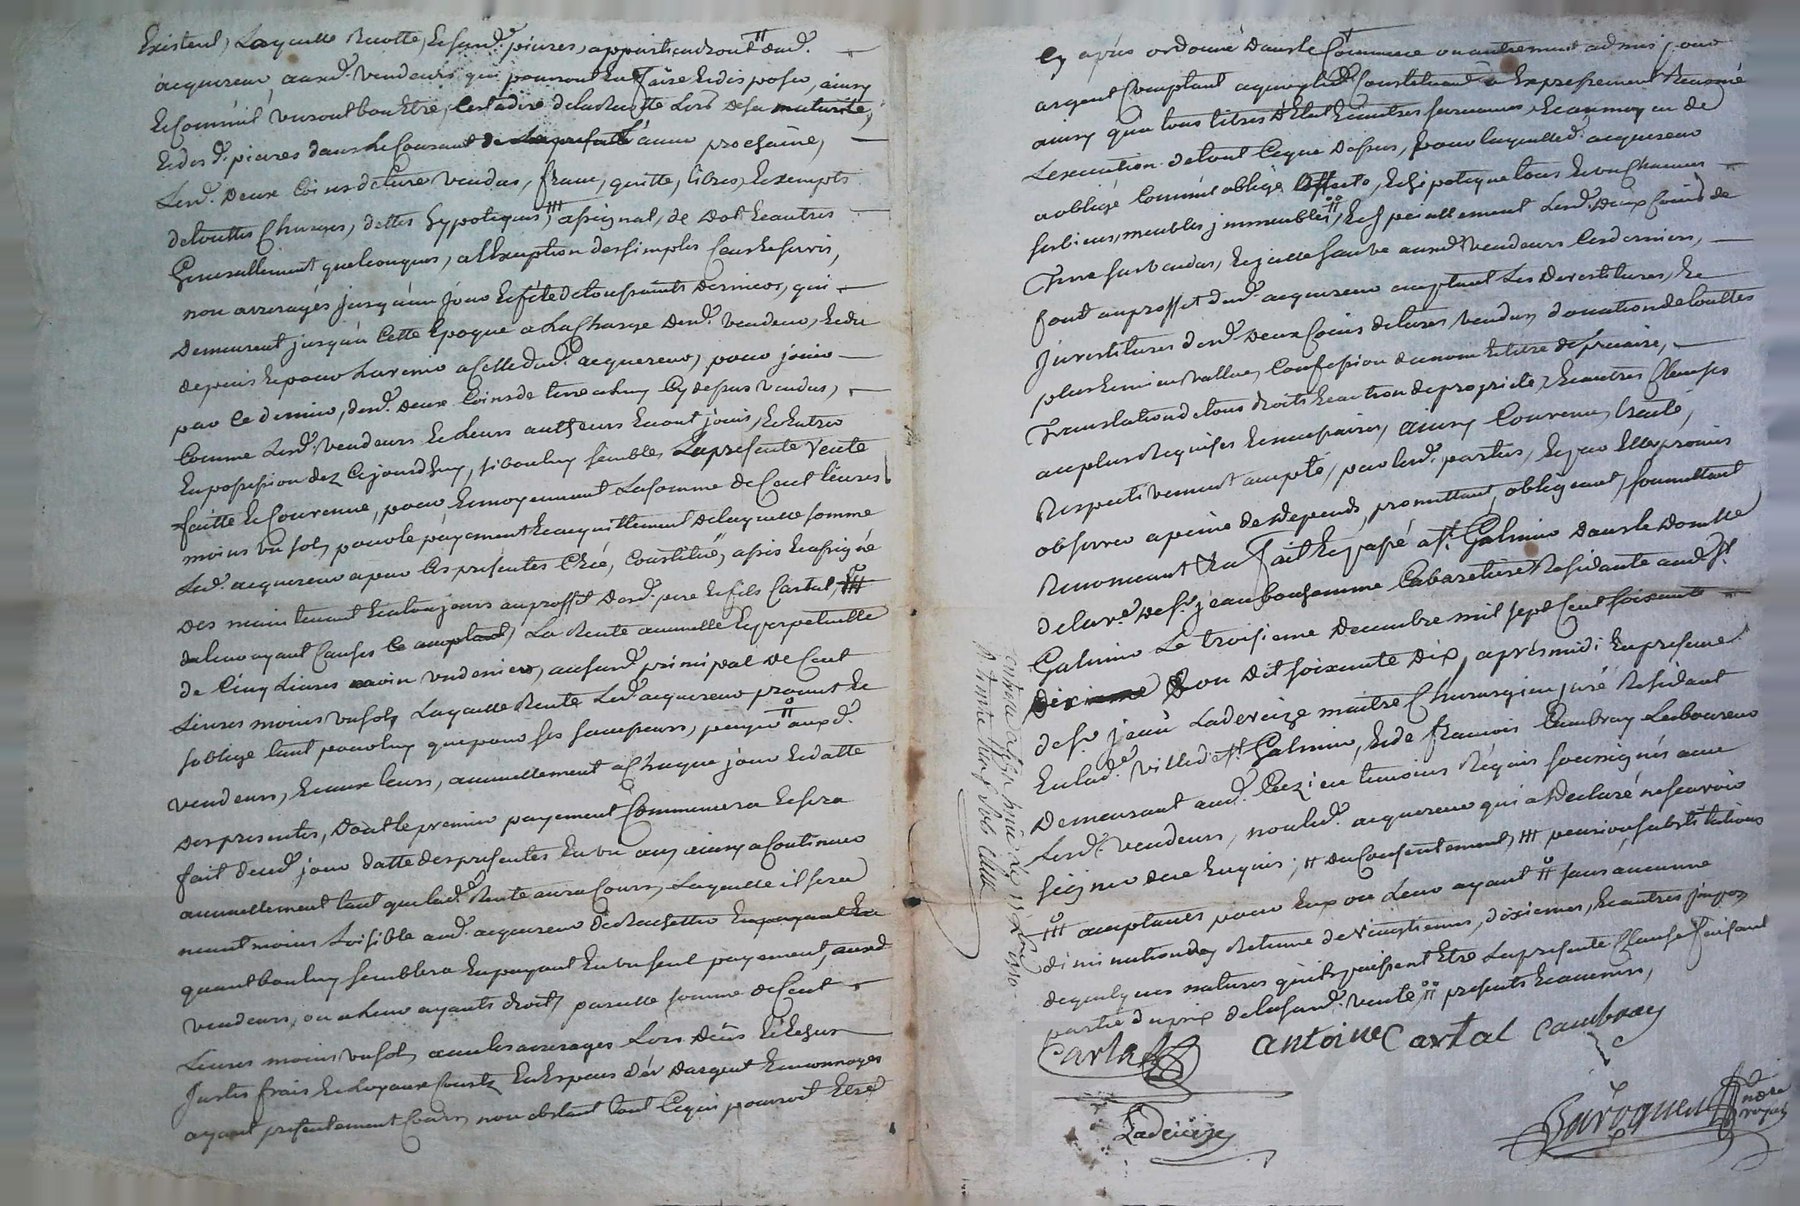 Existent, Laquelle Recolte, Esusd.˙ pieures, appartiendront ╫ aud.
acquereur ausd. Vendeurs qui pourront En faire Et disposer, ainsy
Et Comme il verront bon Etre, Cest adire de la Recolte Lors de sa maturité,
Et des d. pieures dans Le Courant de l'année prochaine,
Lesd. Deux Coins de terre vendus, franc, quitte, libres, Exempts
de touttes Charges, dettes hypoteques, assignat, de Dot Et autres
Generallement quelconques, a l'Exception des simples Cens Et servis,
non arreragés jusqu'au jour Et fête de toussaints Dernier, qui
Demeurent jusqu'a Cette Epoque a La Charge Desd. Vendeurs, Et du
depuis Et pour Lavenir a Celle dud. acquereur, pour jouir
par Ce dernier, desd. Deux Coins de terre a luy Cy dessus Vendus,
Comme Lesd. Vendeurs Et Leurs autheurs En ont joui, Et Entrer
En possession dez Cejourdhuy, si bon luy semble, La presente Vente
faitte Et Convenue, pour Et moyennant La somme de Cent livres
moins un sol, pour le payement Et acquittement De laquelle somme
Led. acquereur a par Ces presentes Créé, Constitué, assis Et assigné
Des maintenant Et a toujours au proffit Desd. pere Et fils Cartal,
de leur ayant Causes Ce acceptant, La Rente annuelle Et perpetuelle
de Cinq Livres moin un denier, au susd. principal de Cent
Livres moins un sol, Laquelle Rente Led. acquereur promet Et
s'oblige tant pour luy que pour ses successeurs, payer auxd.
Vendeurs, Et aux leurs, annuellement a Chaque jour Et datte
Des presentes, Dont le premier payement Commencera Et sera
fait dud. jour datte des presentes En un an, ainsy a Continuer
annuellement tant que lad. Rente aura Cours, Laquelle il sera
neantmoins Loisible aud. acquereur de Rachetter
quant bon luy semblera En payant En un seul payement, ausd.
Vendeurs, ou a leur ayants droits pareille somme de Cent
Livres moins un sol, avec les arrerages Lors Dûs Et Echus
Justes frais Et Loyaux Couts En Especes d'or D'argent Et monnoyes
ayant presentement Cours, non obstant tout Ce qui pourroit Etre
Cy aprés ordonné Dans le Commerce ou autrement admis pour
argent Comptant a quoy led. Constituant a Expressement Renoncé
ainsy qu'a tous titres d'Etat Et autres survenues, Et au moyen de
L'execution de tout Ce que Dessus, pour laquelle led. acquereur
a obligé Comme il oblige affecte, Et hipoteque tous Et un Chacun
ses biens, meubles, immeubles, Et specialement Lesd. Deux Coins de
Terre sus vendus,
sont au proffit dud. acquereur acceptant Les Devestitures, Et
Investitures desd. Deux Coins de terres Vendus, donation de touttes
plus Et mieux Vallue, Confession du nom Et titre de precaire,
Translation de tous droits Et action de proprieté, Et autres Clauses
au plus Requises Et necessaires, ainsy Convenu, traité,
Respectivement accepté, par lesd. parties, Et par Elles promis
observer a peine de Depends, promettant, obligeant, soumettant
Renonceant Et a fait Et passé a St. Galmier Dans le Domicille
de la ve. De Sr. jean bonhomme Cabaretiere Residante aud. St.
Galmier Le troisieme Decembre mil sept Cent soixante
on Dit soixante Dix, aprés midi En presence
de Sr. jean Ladeveize maître Chirurgien juré Residant
En lad. ville de St. Galmier, Et de francois Cambray Laboureur
Demeurant aud. Cezieu temoins Requis soussignés avec
Lesd. Vendeurs, non led. acquereur qui a Declaré ne scavoir
signer de ce Enquis; ╫ du Consentement, pension, substitutions
acceptants pour Eux ou Leur ayant ╫ sans aucune
diminution des Retenue de Vingtiemes, dixiemes, Et autres impots
de quelques natures qu'ils puissent Etre La presente Clause faisant
partie du prix de la susd. vente, ╫ presents Et a venir,
Cartal antoine Cartal Cambray
Ladeveize
notre royal